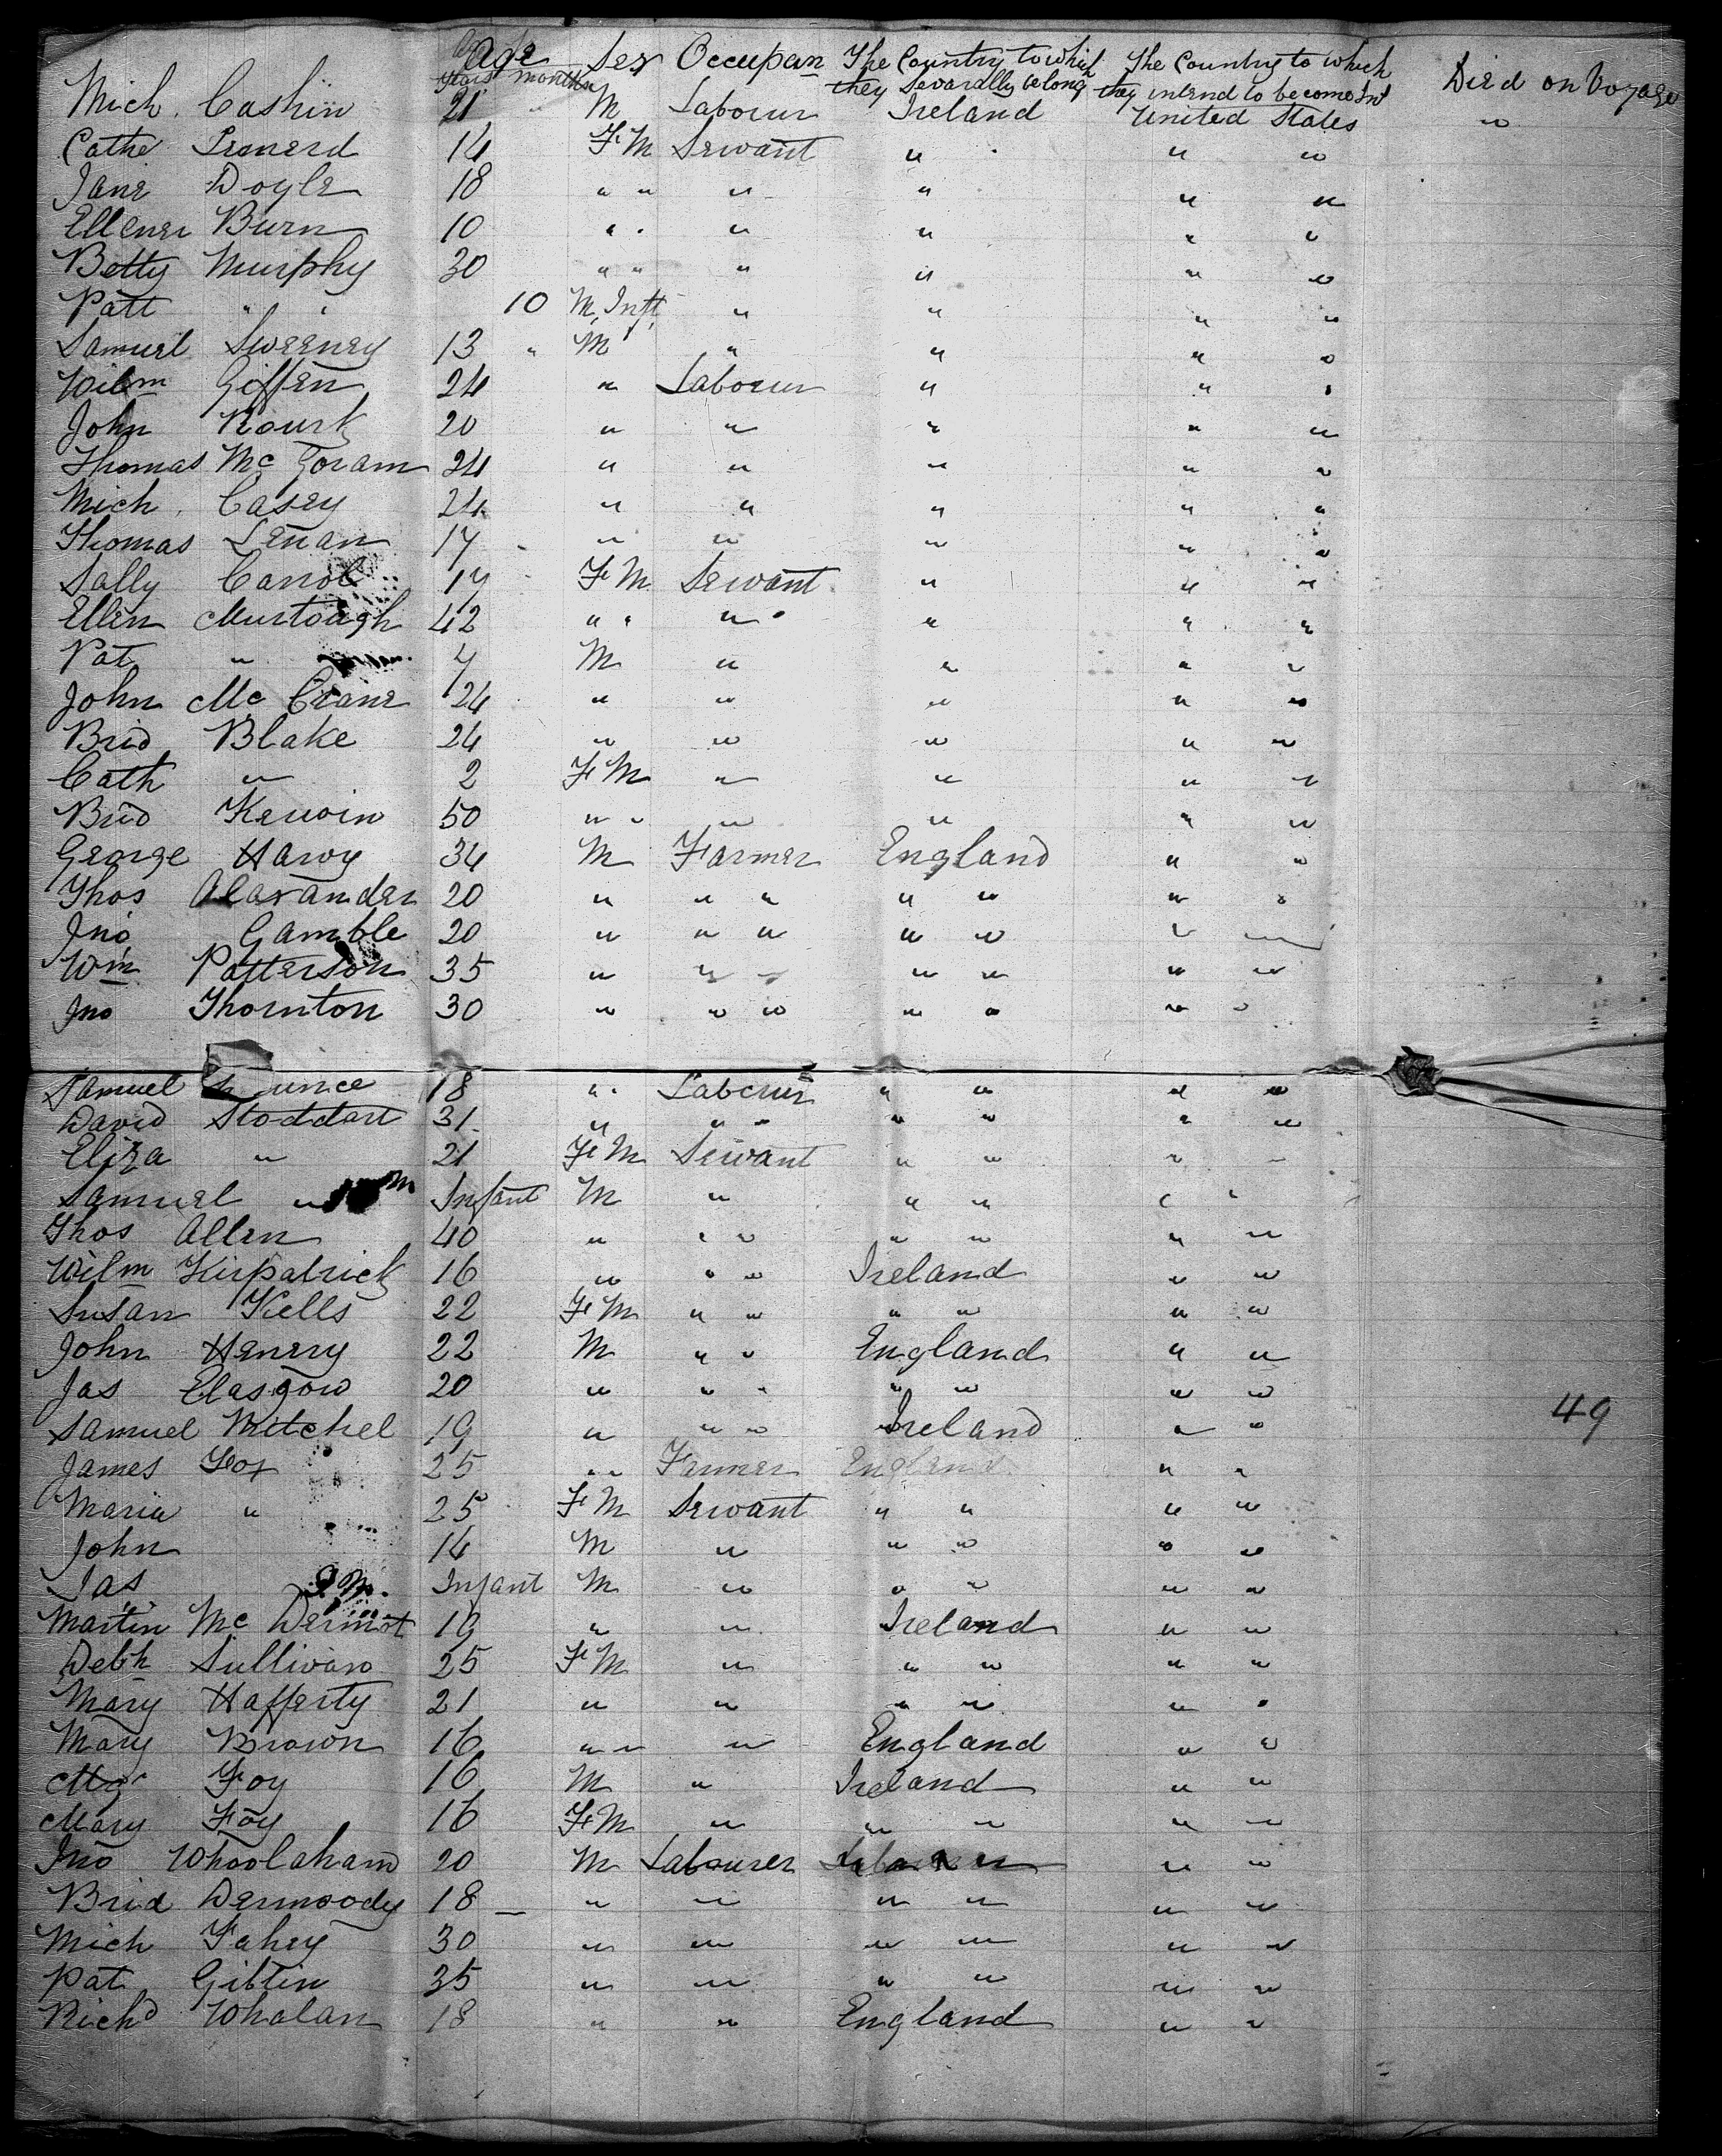 Age Sex Occupan The Country to which The Country to which Died on Voyage
Years months they Severally belong they intend to become Int
Mich. Cashin 21 " M Labourer Ireland United States "
Cathe Lenerd 14 F M Servant " " "
Jane Doyle 18 " " " " " "
Ellener Burn 10 " " " " " "
Betty Murphy 30 " " " " " "
Patt " 10 M, Inft, " " " "
Samuel Sweeney 13 " M " " " "
Wilm Giffen 24 " Labourer " " "
John Rourk 20 " " " " "
Thomas Mc Goram 24 " " " " "
Mich. Casey 24 " " " " "
Thomas Lenan 17 " " " " "
Sally Carrol 17 F M Servant " " "
Ellen Murtough 42 " " " " " "
Pat " 7 M " " " "
John Mc Crane 24 " " " " "
Brid Blake 24 " " " " "
Cath " 2 F M " " " "
Brid Kerwin 50 " " " " " "
George Harvy 34 M Farmer England " "
Thos Alaxander 20 " " " " " " "
Jno Gamble 20 " " " " " " "
Wm Patterson 35 " " " " " " "
Jno Thornton 30 " " " " " " "
Samuel unce 18 " " Labourer " " " "
David Stoddart 31 " " " " " " "
Eliza " 21 F M Servant " " " "
Samuel " m Infant M " " " " "
Thos Allen 40 " " " " " " "
Wilm Kirpatrick 16 " " " Ireland " "
Susan Kells 22 F M " " " " " "
John Henery 22 M " " England " "
Jas Elasgow 20 " " " " " " "
Samuel Mitchel 19 " " " Ireland " " 49
James Fox 25 " " Farmer England " "
Maria " 25 F M Servant " " " "
John 14 M " " " " "
Jas 9 m. Infant M " " " " "
Martin Mc Dermot 19 " " Ireland " "
Debh Sullivan 25 F M " " " " "
Mary Hafferty 21 " " " " " "
Mary Brown 16 " " " England " "
Foy 16 M " Ireland " "
Mary Foy 16 F M " " " " "
Jno Whoolaham 20 M Labourer " "
Brid Dermoody 18 " " " " " "
Mich Fahey 30 " " " " " "
Pat Giblin 35 " " " " " "
Richd Whalan 18 " " England " "